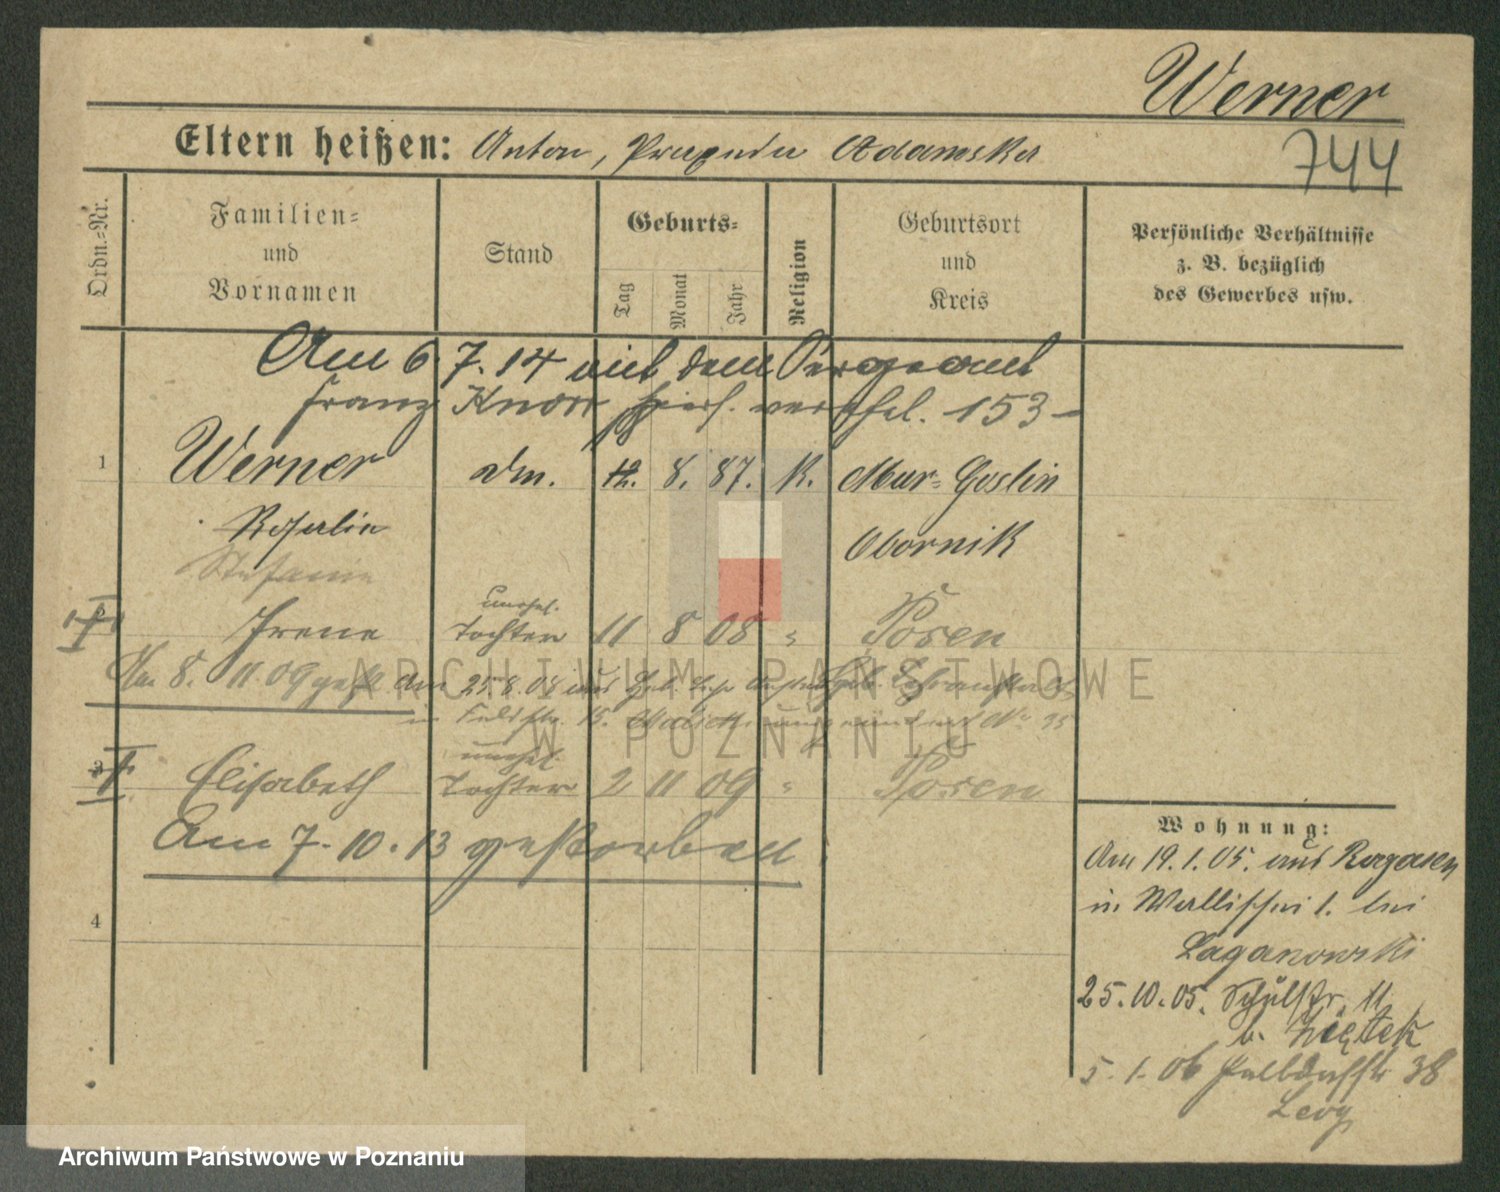 Werner
Eltern heißen: Anton, Adamska
744
Ordn.=Nr.
Familien=
und
Vornamen
Stand
Geburts=
Tag
Monat
Jahr
Religion
Geburtsort
und
Kreis
Persönliche Verhältnisse
z. B. bezüglich
des Gewerbes usw.
Am 6. 7. 14 mit dem Sergeant
Franz Knorr verehel. 153
1 Werner dm. 12. 8. 87. K. Mur= Goslin
Rosalie Obornik
Stefanie
unehel.
Irene Tochter 11 8 08 " Posen
Am 8. 11. 09 gest. am 25.8.08 aus
in
unehel.
3 Elisabeth Tochter 2 11 09 " Posen
Am 7. 10. 13 gestorben
4
Wohnung:
Am 19. 1. 05. aus Rogasen
in Wallischei 1. bei
Laganowski
25. 10. 05. Schulstr. 11
b. Ziętek
5. 1. 06 38
Levy
ARCHIWUM PAŃSTWOWE
W POZNANIU
Archiwum Państwowe w Poznaniu